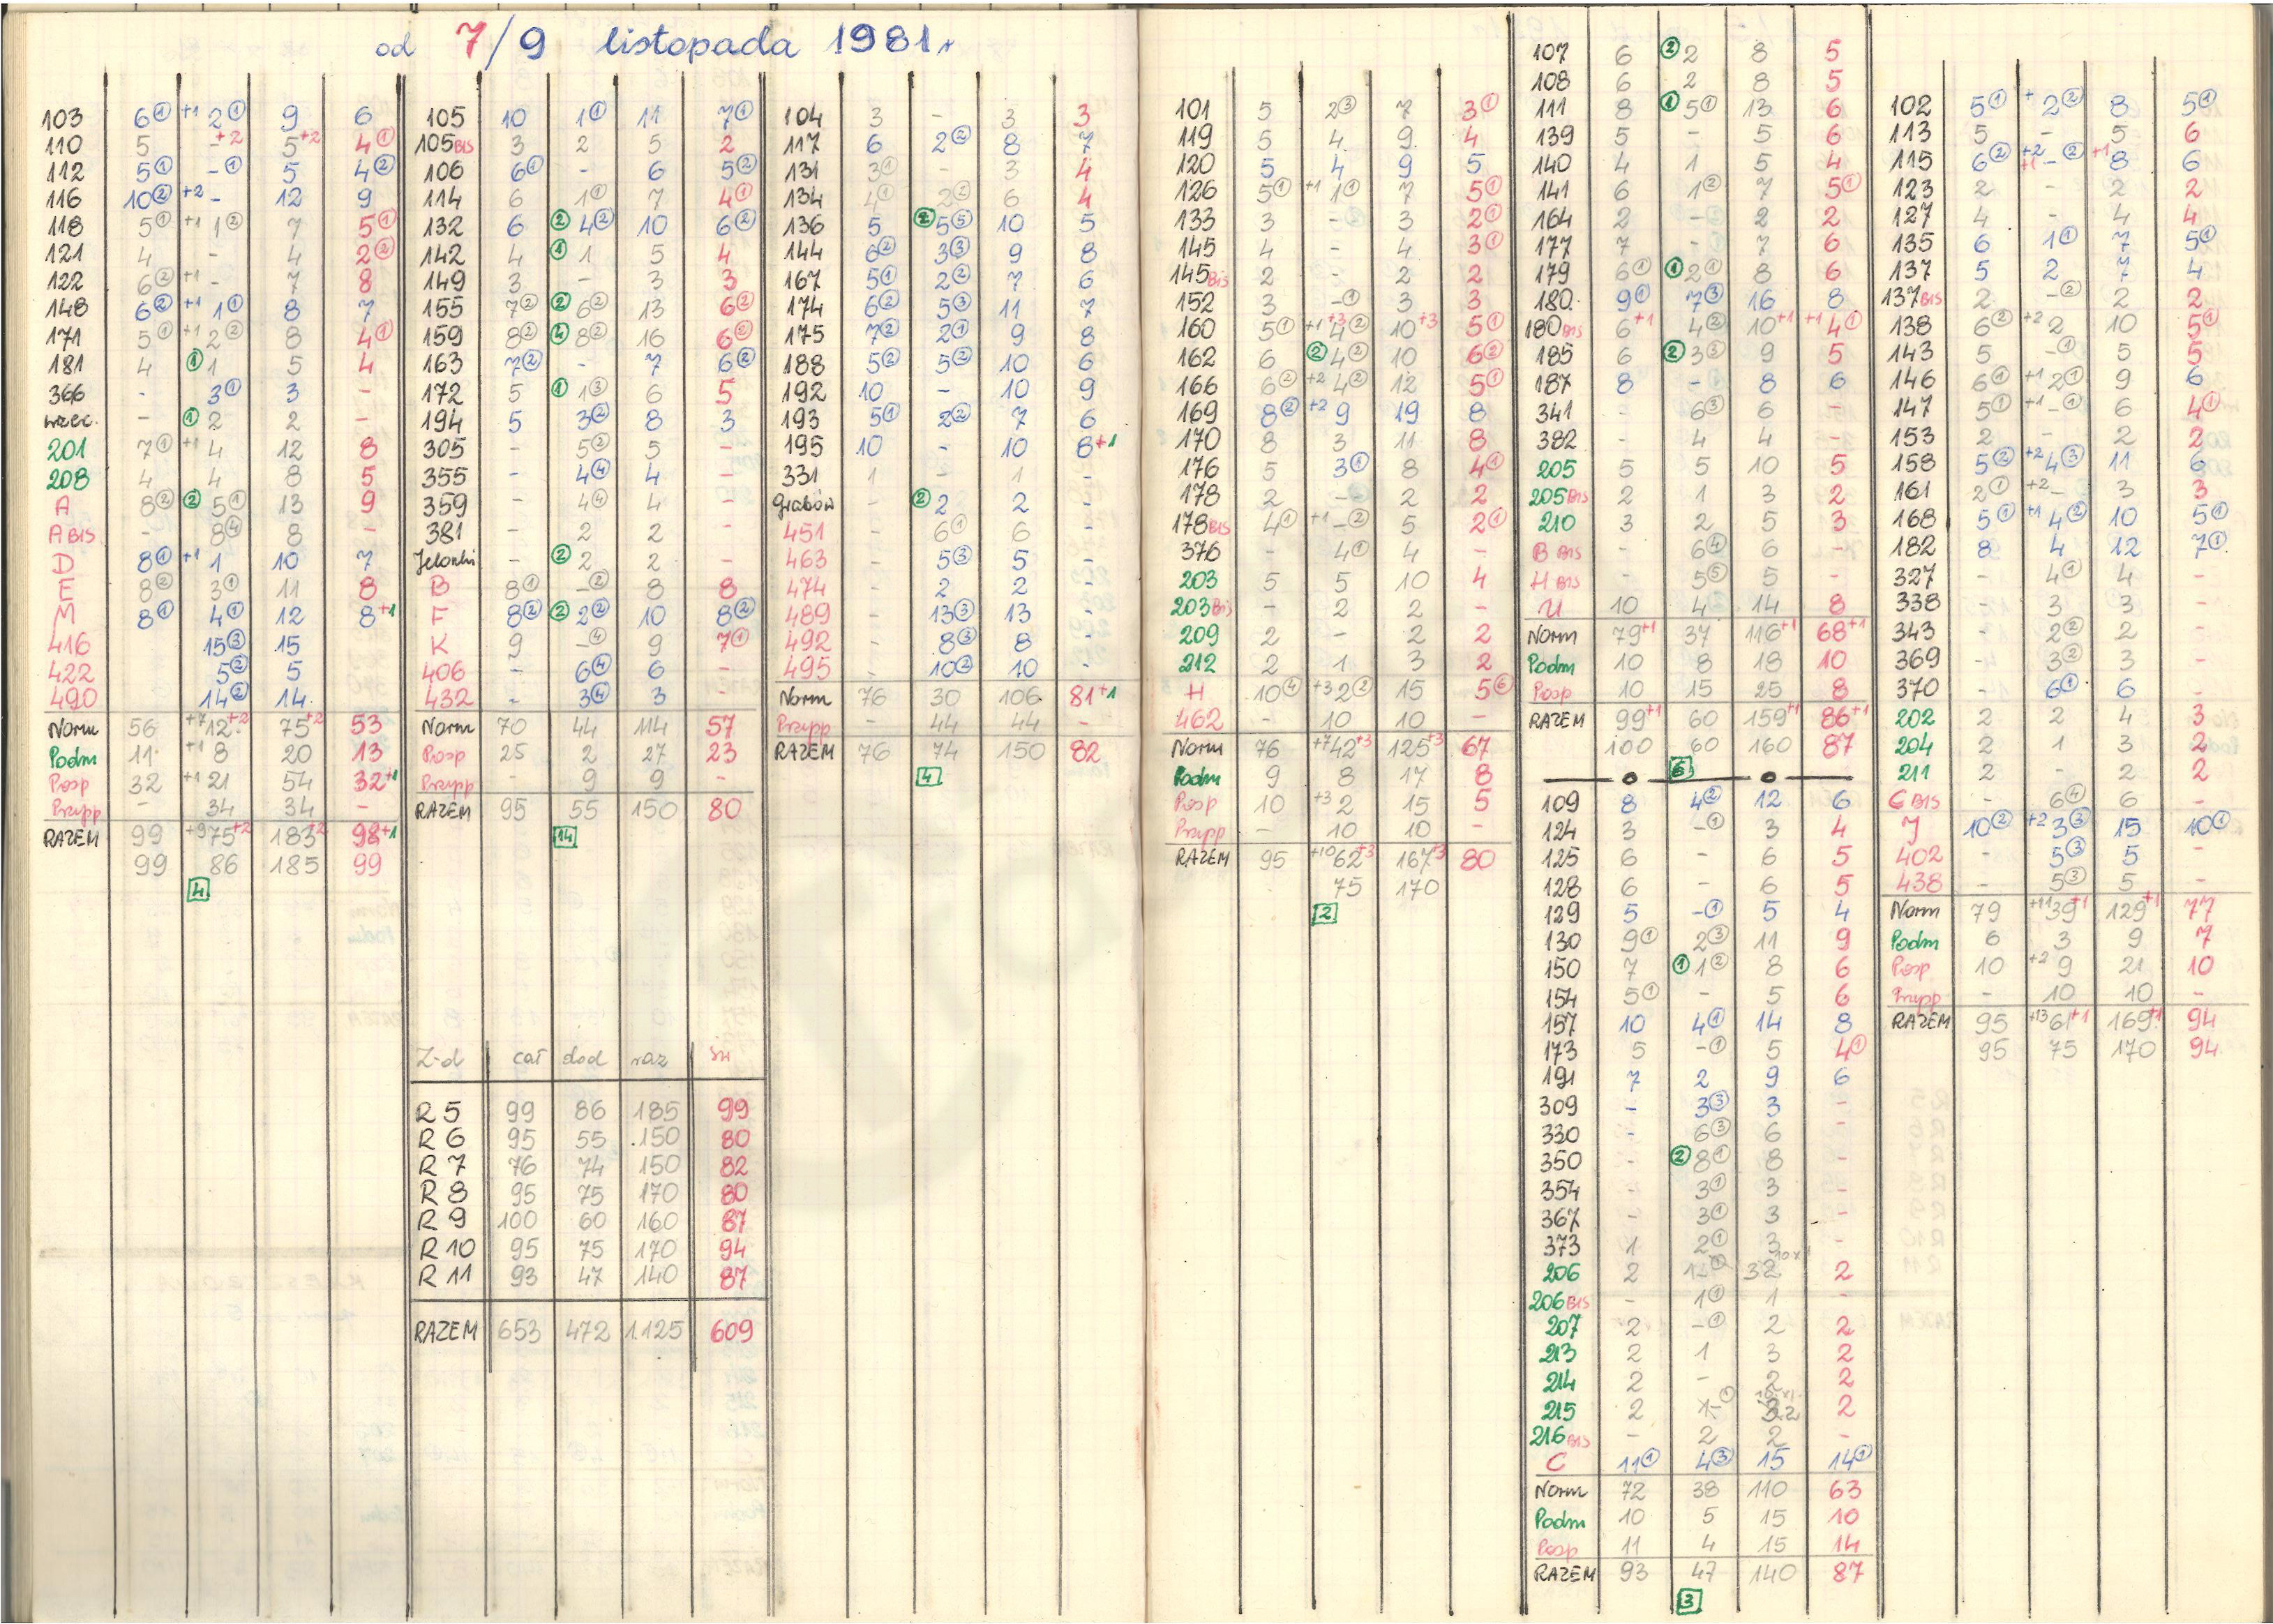 od 7/9 listopada 1981r.
103 6① +1 2① 9 6
110 5 - +2 5+2 4①
112 5① -① 5 4②
116 10② +2 - 12 9
118 5① +1 1② 7 5①
121 4 - 4 2②
122 6② +1 - 7 8
148 6② +1 1① 8 7
171 5① +1 2② 8 4①
181 4 ① 1 5 4
366 - 3① 3 -
wrzec. - ① 2 2 -
201 7① +1 4 12 8
208 4 4 8 5
A 8② ② 5① 13 9
A BIS - 8④ 8 -
D 8① +1 1 10 7
E 8② 3① 11 8
M 8① 4① 12 8+1
416 15③ 15
422 5② 5
490 14② 14
Norm 56 +7 12+2 75+2 53
Podm 11 +1 8 20 13
Posp 32 +1 21 54 32+1
Przysp - 34 34 -
RAZEM 99 +9 75+2 183+2 98+1
99 86 185 99
4
105 10 1① 11 7①
105 BIS 3 2 5 2
106 6① - 6 5②
114 6 1① 7 4①
132 6 ② 4② 10 6②
142 4 ① 1 5 4
149 3 - 3 3
155 7② ② 6② 13 6②
159 8② ④ 8② 16 6②
163 7② - 7 6②
172 5 ① 1③ 6 5
194 5 3② 8 3
305 - 5② 5 -
355 - 4④ 4 -
359 - 4④ 4 -
381 - 2 2 -
Jelonki - ② 2 2 -
B 8① -② 8 8
F 8② ② 2② 10 8②
K 9 -④ 9 7①
406 - 6④ 6 -
432 - 3④ 3 -
Norm 70 44 114 57
Posp 25 2 27 23
Przysp - 9 9 -
RAZEM 95 55 150 80
14
Z-d cał dod raz św
R 5 99 86 185 99
R 6 95 55 150 80
R 7 76 74 150 82
R 8 95 75 170 80
R 9 100 60 160 87
R 10 95 75 170 94
R 11 93 47 140 87
RAZEM 653 472 1.125 609
104 3 - 3 3
117 6 2② 8 7
131 3① - 3 4
134 4① 2② 6 4
136 5 ② 5⑤ 10 5
144 6② 3③ 9 8
167 5① 2② 7 6
174 6② 5③ 11 7
175 7② 2① 9 8
188 5② 5② 10 6
192 10 - 10 9
193 5① 2② 7 6
195 10 - 10 8+1
331 1 - 1 -
Grabów - ② 2 2 -
451 - 6① 6 -
463 - 5③ 5 -
474 - 2 2 -
489 - 13③ 13 -
492 - 8③ 8 -
495 - 10② 10 -
Norm 76 30 106 81+1
Przysp - 44 44 -
RAZEM 76 74 150 82
4
101 5 2③ 7 3①
119 5 4 9 4
120 5 4 9 5
126 5① +1 1① 7 5①
133 3 - 3 2①
145 4 - 4 3①
145 BIS 2 - 2 2
152 3 -① 3 3
160 5① +1 4② +3 10+3 5①
162 6 ② 4② 10 6②
166 6② +2 4② 12 5①
169 8② +2 9 19 8
170 8 3 11 8
176 5 3① 8 4①
178 2 - 2 2
178 BIS 4① +1 -② 5 2①
376 - 4① 4 -
203 5 5 10 4
203 Bis - 2 2 -
209 2 - 2 2
212 2 1 3 2
H 10④ +3 2② 15 5⑥
462 - 10 10 -
Norm 76 +7 42+3 125+3 67
Podm 9 8 17 8
Posp 10 +3 2 15 5
Przysp - 10 10 -
RAZEM 95 +10 62+3 167+3 80
75 170
2
107 6 ② 2 8 5
108 6 2 8 5
111 8 ① 5① 13 6
139 5 - 5 6
140 4 1 5 4
141 6 1② 7 5①
164 2 - 2 2
177 7 - 7 6
179 6① ① 2① 8 6
180 9① 7③ 16 8
180 BIS 6+1 4② 10+1 +1 4①
185 6 ② 3③ 9 5
187 8 - 8 6
341 - 6③ 6 -
382 - 4 4 -
205 5 5 10 5
205 BIS 2 1 3 2
210 3 2 5 3
B BIS - 6④ 6 -
H BIS - 5⑤ 5 -
U 10 4 14 8
Norm 79+1 37 116+1 68+1
Podm 10 8 18 10
Posp 10 15 25 8
RAZEM 99+1 60 159+1 86+1
100 60 160 87
6
109 8 4② 12 6
124 3 -① 3 4
125 6 - 6 5
128 6 - 6 5
129 5 -① 5 4
130 9① 2③ 11 9
150 7 ① 1② 8 6
154 5① - 5 6
157 10 4① 14 8
173 5 -① 5 4①
191 7 2 9 6
309 - 3③ 3 -
330 - 6③ 6 -
350 - ② 8① 8 -
354 - 3① 3 -
367 - 3① 3 -
373 1 2① 3 -
206 2 2
206 BIS - 1① 1 -
207 2 -① 2 2
213 2 1 3 2
214 2 - 2 2
215 2 2
216 BIS - 2 2 -
C 11① 4③ 15 14①
Norm 72 38 110 63
Podm 10 5 15 10
Posp 11 4 15 14
RAZEM 93 47 140 87
3
102 5① + 2② 8 5①
113 5 - 5 6
115 6② +2 +1 -② +1 8 6
123 2 - 2 2
127 4 - 4 4
135 6 1① 7 5①
137 5 2 7 4
137 BIS 2 -② 2 2
138 6② +2 2 10 5①
143 5 -① 5 5
146 6① +1 2① 9 6
147 5① +1 -① 6 4①
153 2 - 2 2
158 5② +2 4③ 11 6
161 2① +2 - 3 3
168 5① +1 4② 10 5①
182 8 4 12 7①
327 - 4① 4 -
338 - 3 3 -
343 - 2② 2 -
369 - 3② 3 -
370 - 6① 6 -
202 2 2 4 3
204 2 1 3 2
211 2 - 2 2
C BIS - 6④ 6 -
J 10② +2 3③ 15 10①
402 - 5③ 5 -
438 - 5③ 5 -
Norm 79 +11 39+1 129+1 77
Podm 6 3 9 7
Posp 10 +2 9 21 10
Przysp - 10 10 -
RAZEM 95 +13 61+1 169+1 94
95 75 170 94